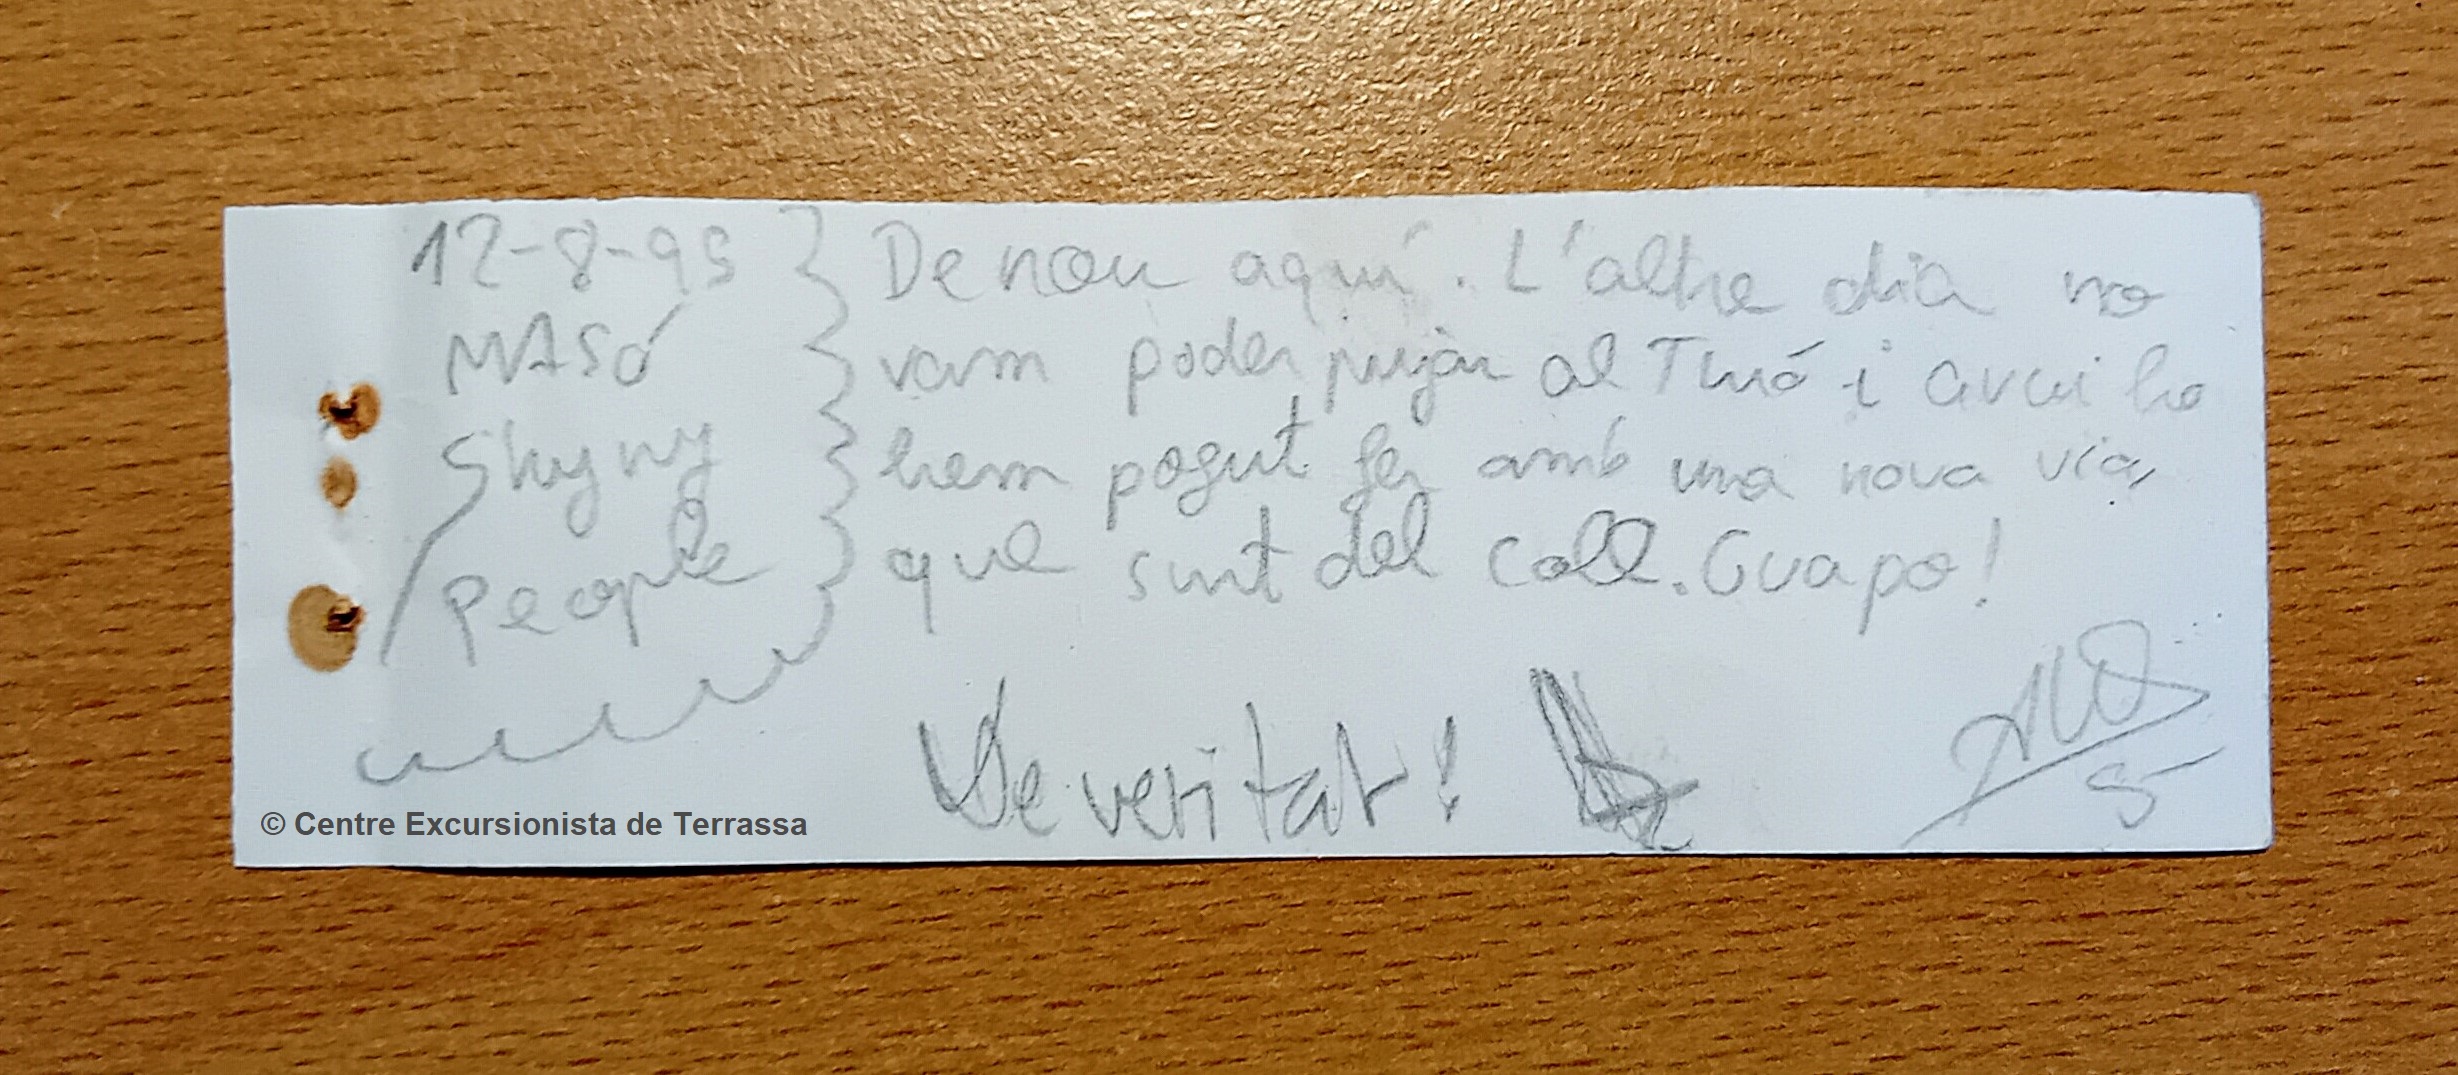 12-8-95
MASÓ
Shyny
People
De nou aquí. L'altre dia no
vam poder pujar al Turó i avui ho
hem pogut fer amb una nova via,
que surt del coll. Guapo!
De veritat!
© Centre Excursionista de Terrassa